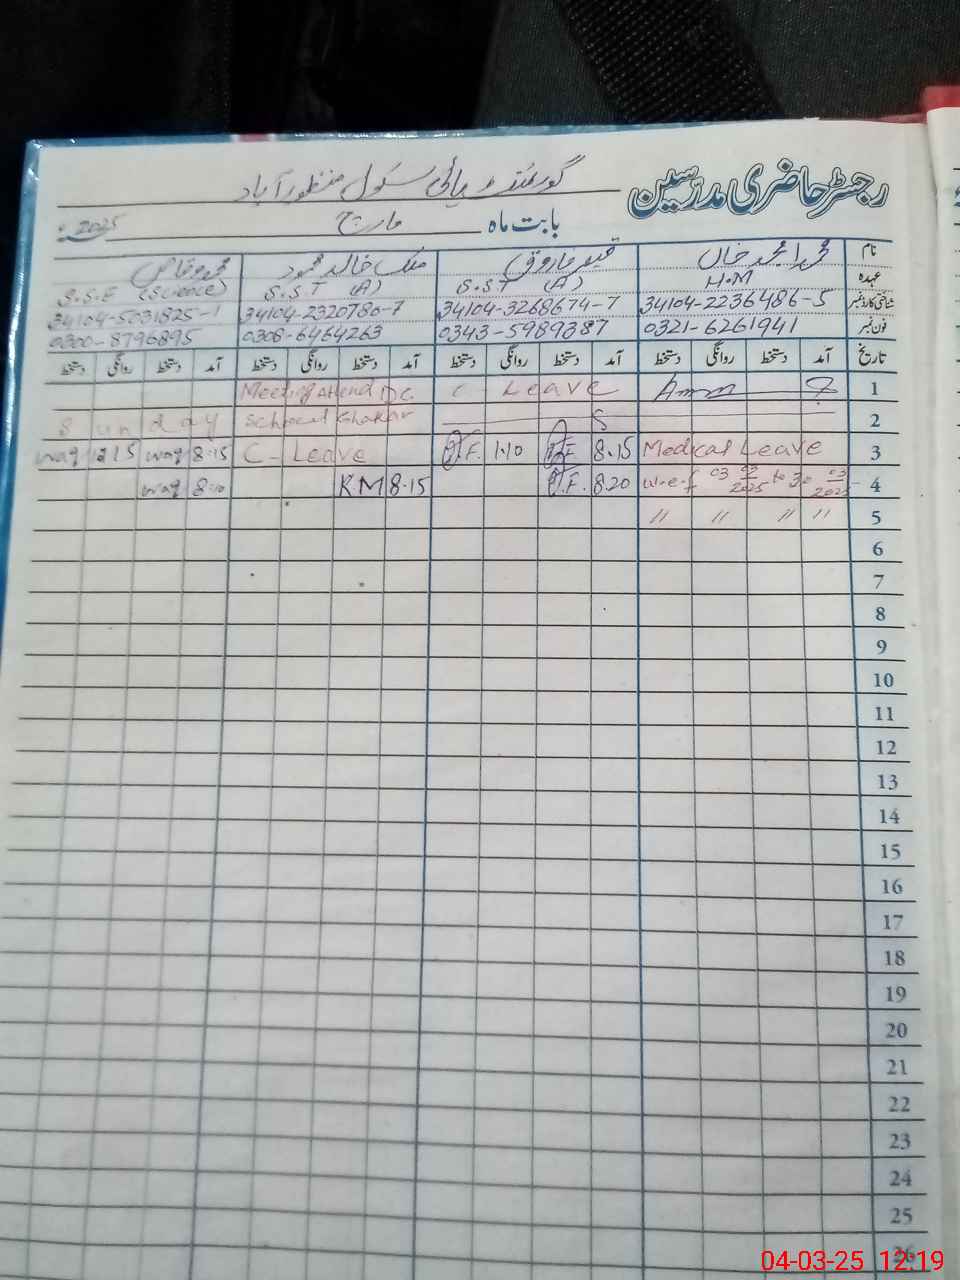 رجسٹر حاضری مدرسین گورنمنٹ ہائی سکول منظورآباد
بابت ماہ مارچ 2025ء
نام محمد امجد خان قیصر فاروق ملک خالد محمود محمد وقاص
عہدہ H.M S.S.T (A) S.S.T (A) S.S.E (Science)
شناختی کارڈ نمبر 34104-2236486-5 34104-3268674-7 34104-2320786-7 34104-5031825-1
فون نمبر 0321-6261941 0343-5989387 0308-6464263 0300-8796895
تاریخ آمد دستخط روانگی دستخط آمد دستخط روانگی دستخط آمد دستخط روانگی دستخط آمد دستخط روانگی دستخط
1 C - Leave Meeting Attend DC
2 S School Ghakar Sunday
3 Medical Leave 8.15 Q.F. 1.10 Q.F. C - Leave 8.15 waq 1215 waq
4 w.e.f 03 03 2025 to 30 03 2025 8.20 Q.F. 8.15 KM 8.10 waq
5 〃 〃 〃 〃
6
7
8
9
10
11
12
13
14
15
16
17
18
19
20
21
22
23
24
25
26
04-03-25 12:19